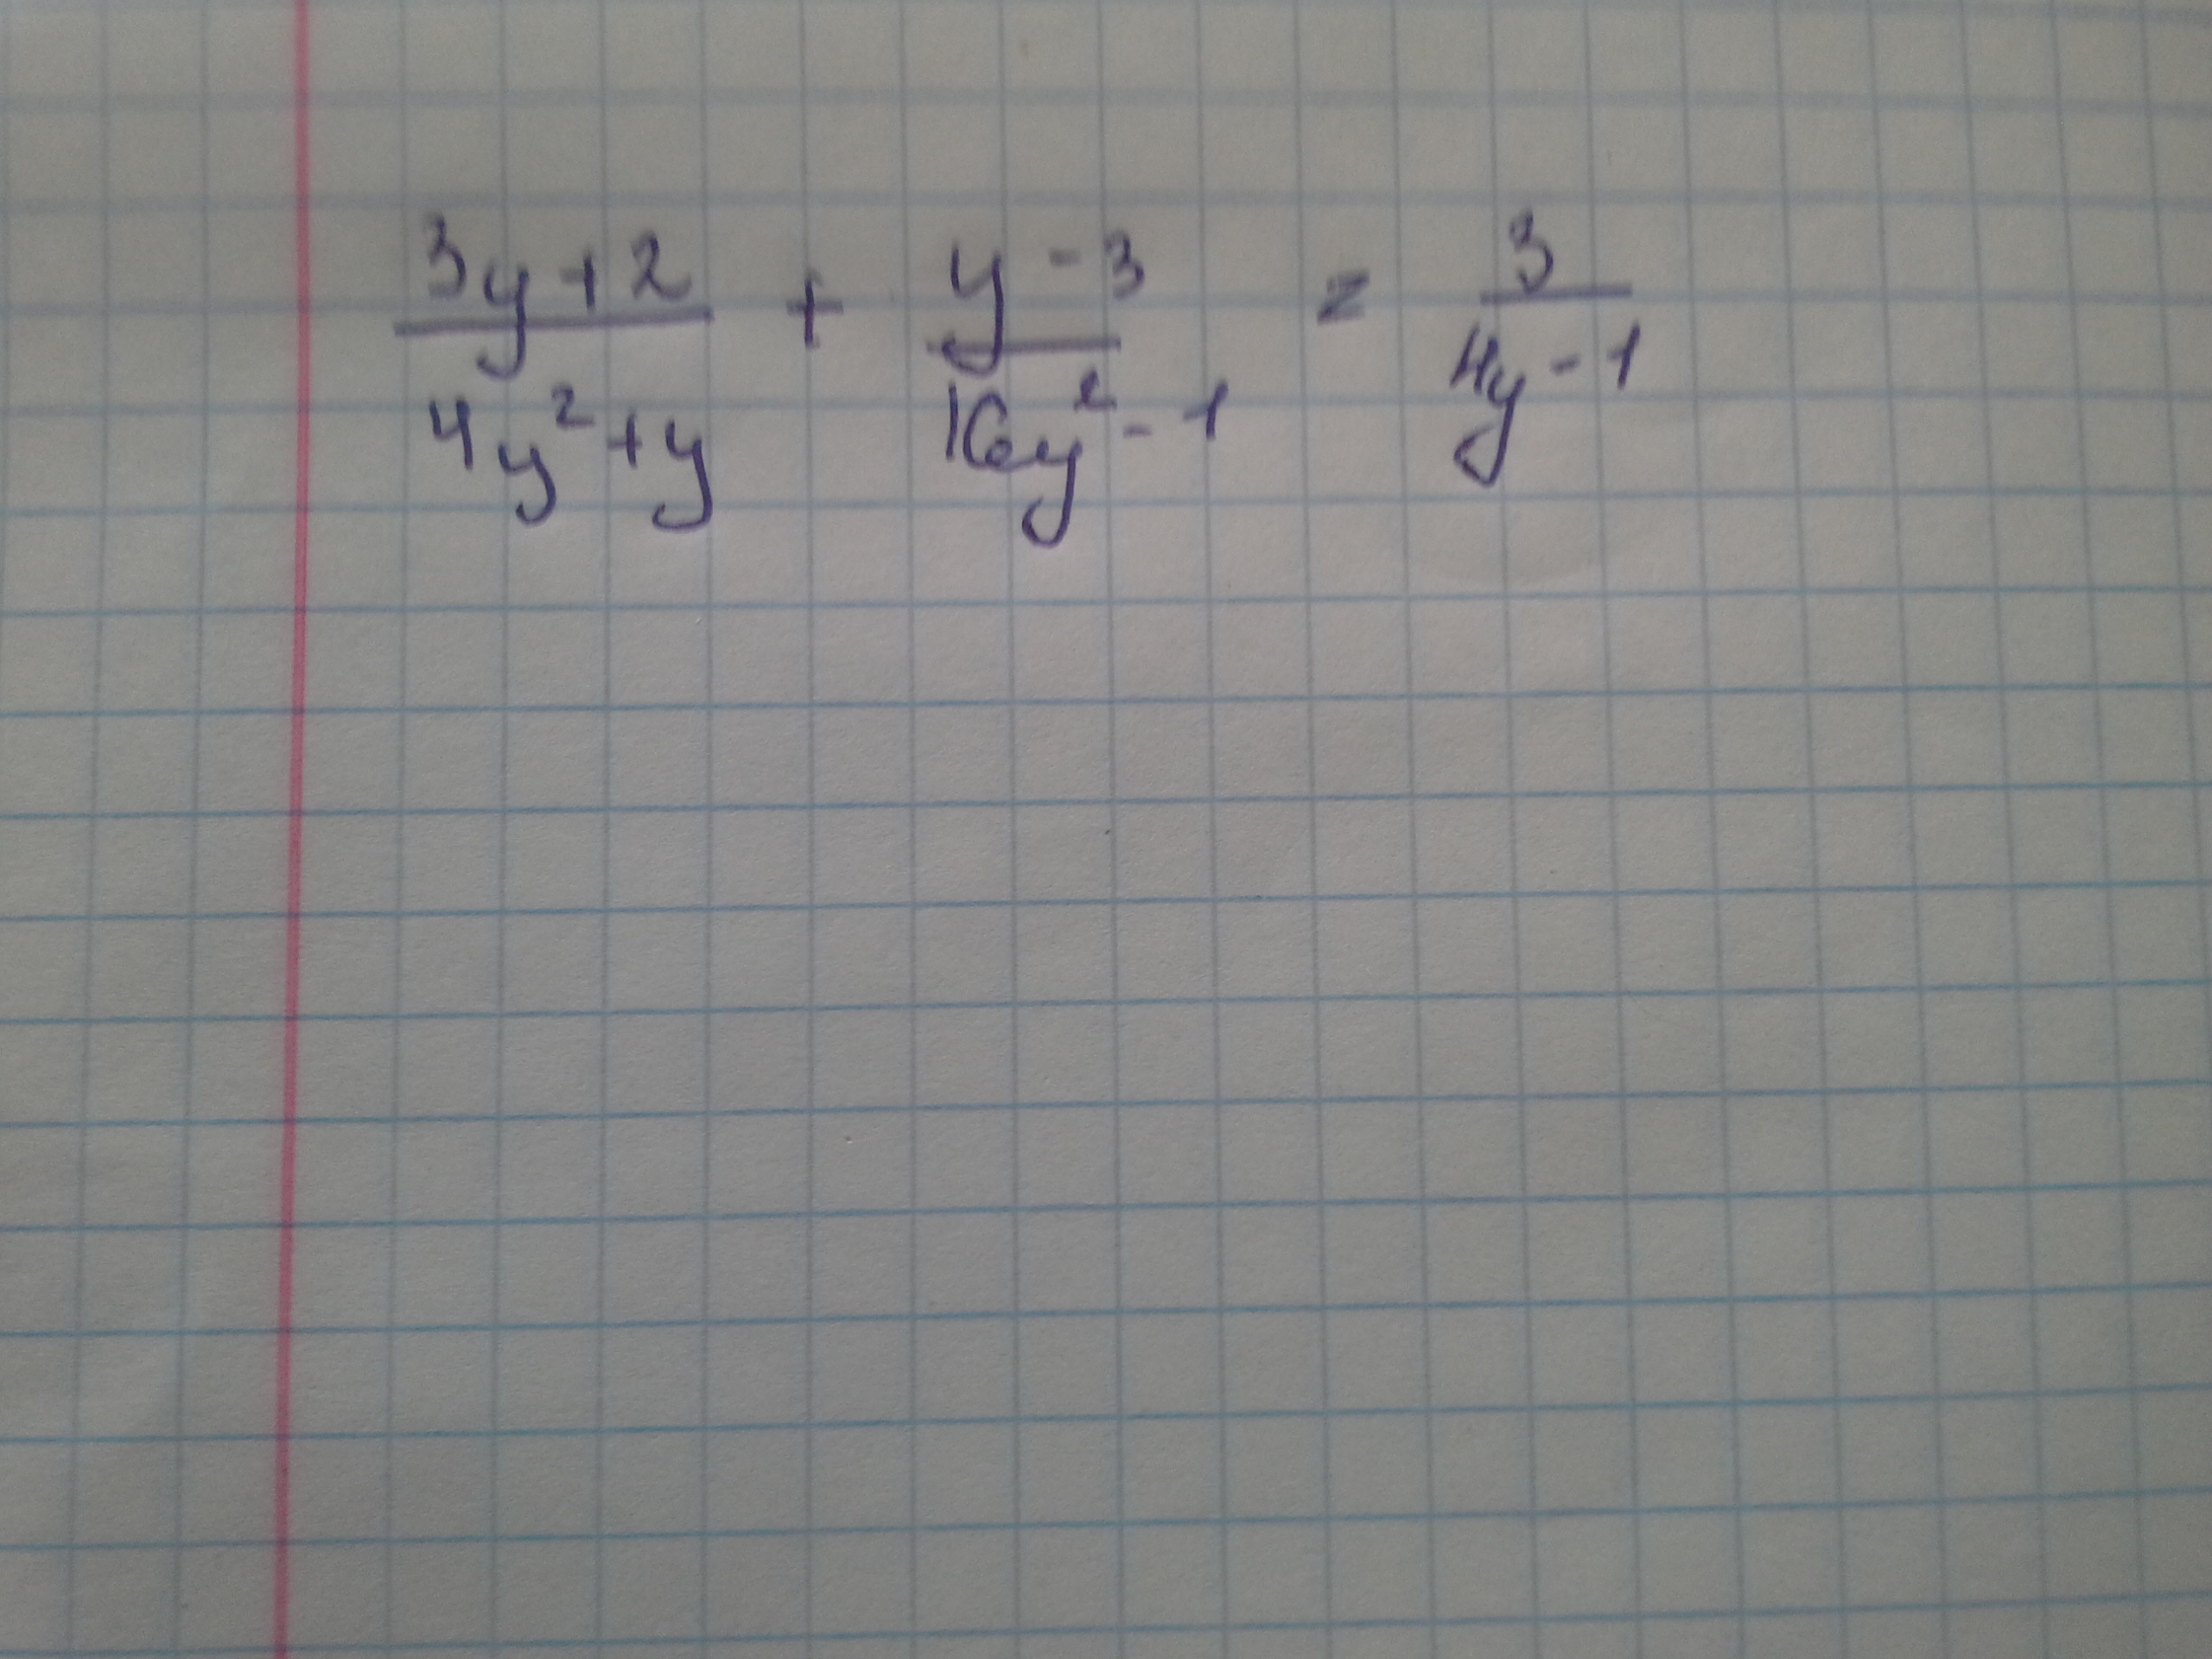 3y+2/4y²+y + y-3/16y²-1 = 3/4y-1